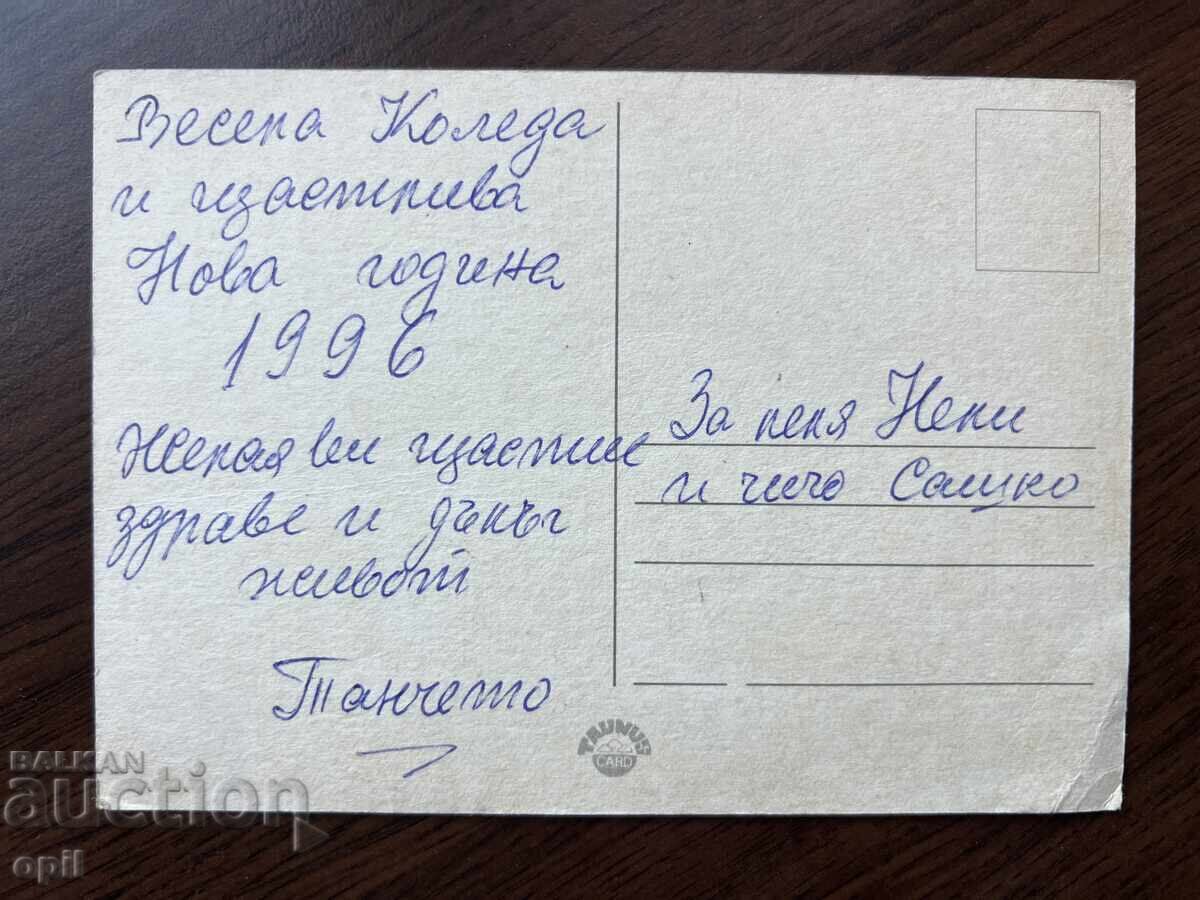 Весела Коледа
и щастлива
Нова година
1996
Желая Ви щастие
здраве и дълъг
живот
Танчето
За леля Нели
и чичо Сашко
TAUNUS
CARD
BALKAN
auction
opil